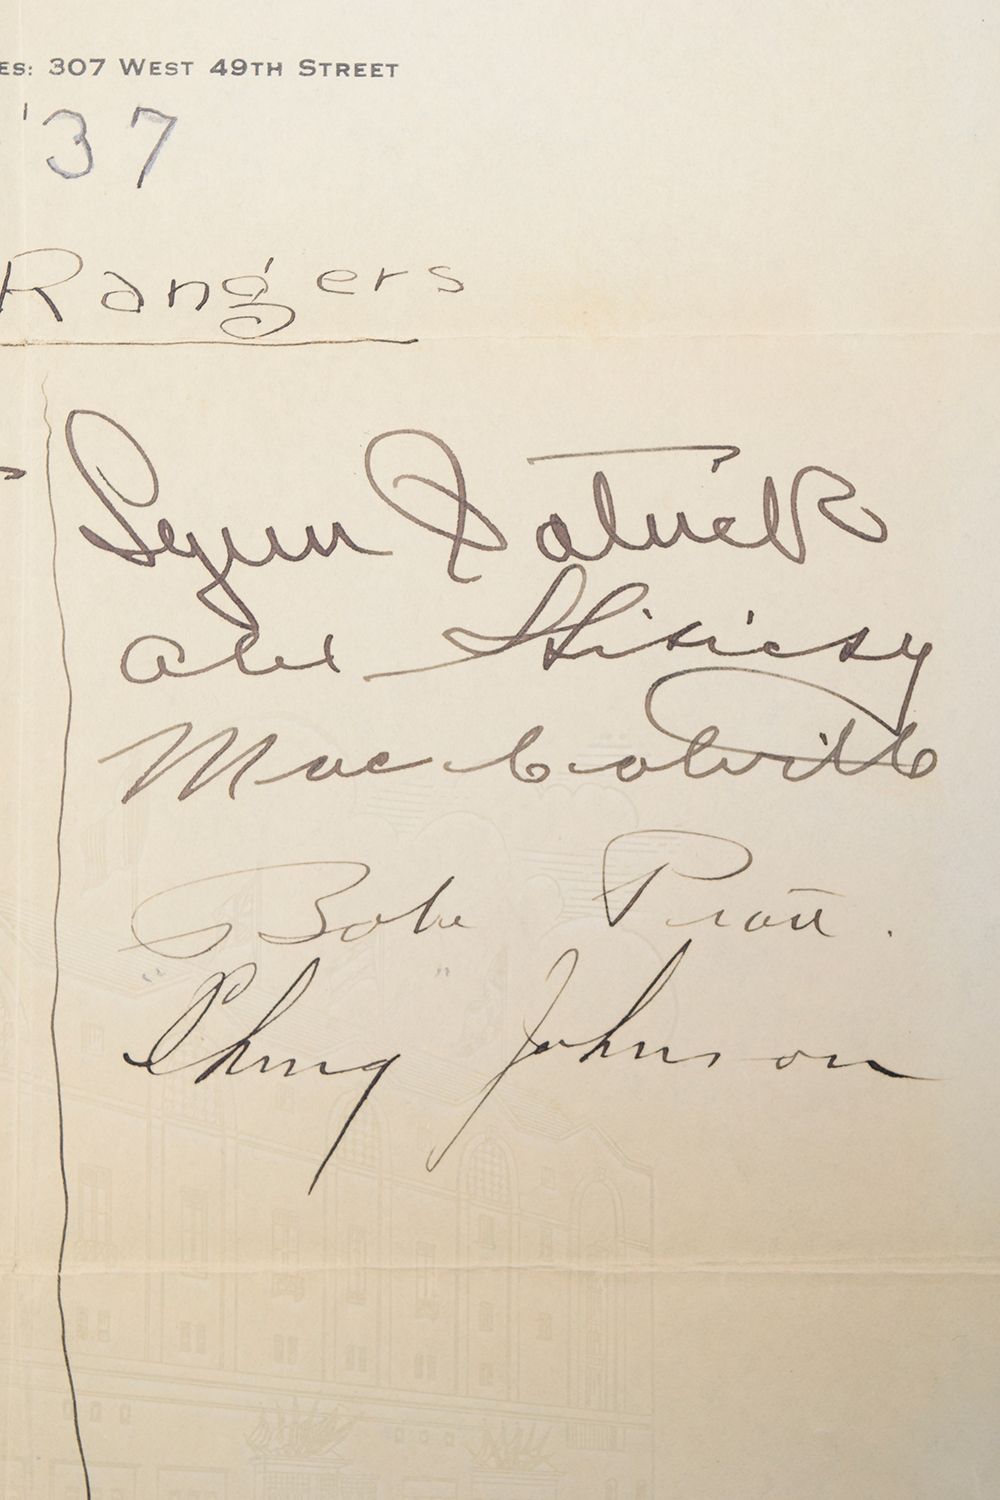 ES: 307 WEST 49TH STREET
'37
Rangers
Lynn Patrick
Alex Shibicky
Mac Colville
Babe Pratt.
" "
Ching Johnson